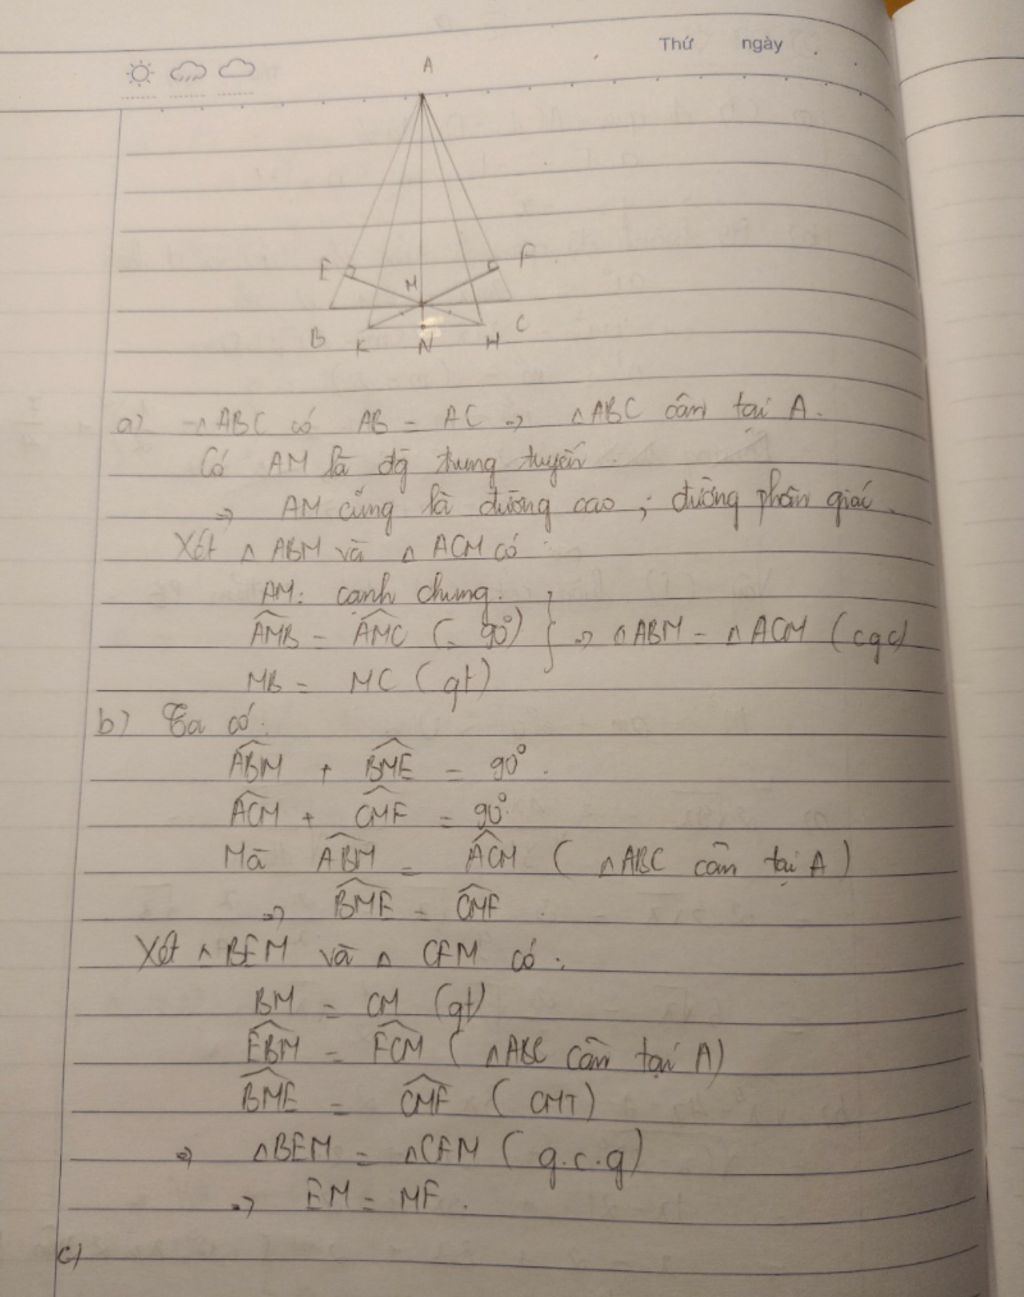 Thứ ngày
A
E F
M
B K N H C
a) △ABC có AB = AC => △ABC cân tại A.
Có AM là đg trung tuyến.
=> AM cũng là đường cao ; đường phân giác.
Xét △ ABM và △ ACM có :
AM: cạnh chung.
AMB = AMC (= 90°) } => △ABM = △ACM (cgc)
MB = MC (gt)
b) Ta có:
ABM + BME = 90°.
ACM + CMF = 90°
Mà ABM = ACM (△ABC cân tại A)
=> BME = CMF
Xét △BEM và △ CFM có :
BM = CM (gt)
EBM = FCM (△ABC cân tại A)
BME = CMF (CMT)
=> △BEM = △CFM (g.c.g)
=> EM = MF.
c)